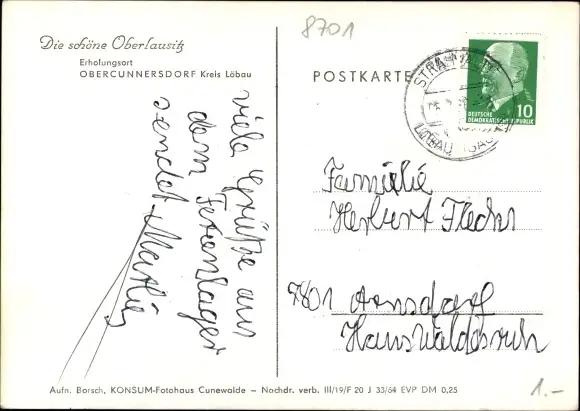 8701
Die schöne Oberlausitz
Erholungsort
OBERCUNNERSDORF Kreis Löbau
viele Grüße aus
dem Ferienlager
sendet
POSTKARTE
10
DEUTSCHE
DEMOKRATISCHE REPUBLIK
LÖBAU (SACHS)
Familie
Herbert
7801 Arnsdorf
Haus Waldesruh
1.-
Aufn. Borsch, KONSUM-Fotohaus Cunewalde — Nochdr. verb. III/19/F 20 J 33/64 EVP DM 0,25